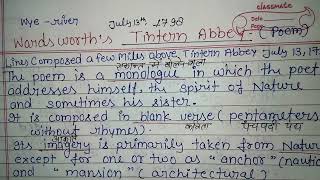 classmate
Wye - river July 13th 1798 Date
Page
Wordsworth's Tintern Abbey : (Poem)
Lines Composed a few Miles above Tintern Abbey July 13, 17
The poem is a monologue in which the poet
addresses himself, the spirit of Nature
and sometimes his sister.
It is composed in blank verse (pentameters
without rhymes). कविता पंचपदी पद्य
Its imagery is primarily taken from Nature
except for one or two as "anchor" (nautic
and "mansion" (architectural)